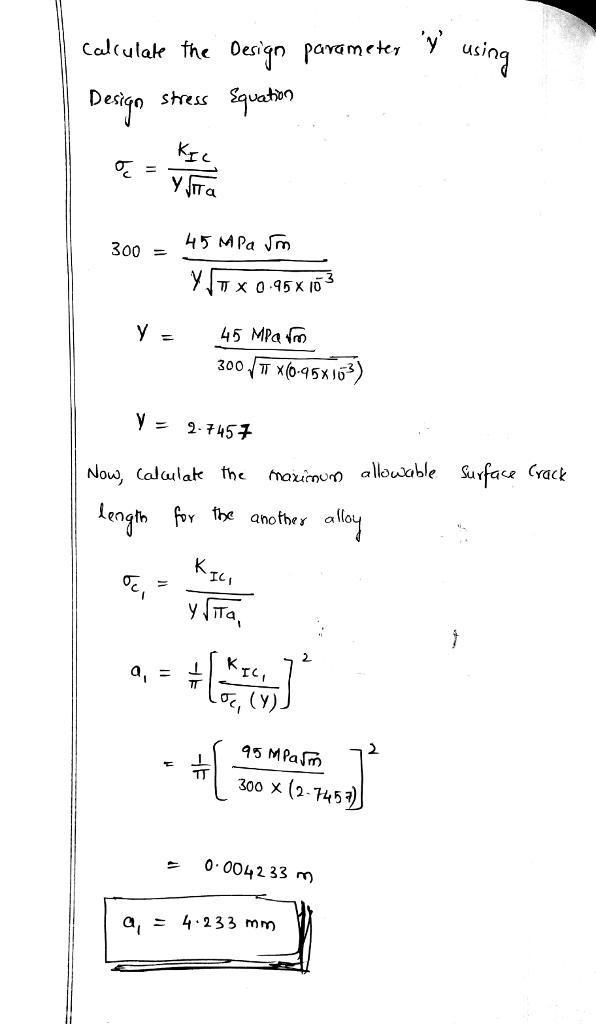 Calculate the Design parameter 'Y' using
Design stress Equation
σc = KIC / Y√πa
300 = 45 MPa √m / Y√π × 0.95 × 10^-3
Y = 45 MPa √m / 300 √π ×(0.95×10^-3)
Y = 2.7457
Now, Calculate the maximum allowable Surface Crack
length for the another alloy
σc1 = KIC1 / Y√πa1
a1 = 1/π [KIC1 / σc1 (Y)]^2
= 1/π [95 MPa√m / 300 × (2.7457)]^2
= 0.004233 m
a1 = 4.233 mm